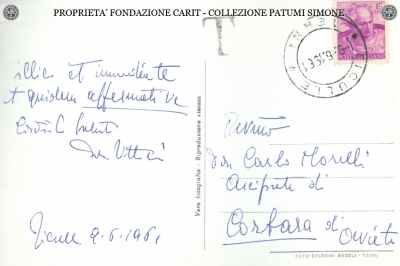 PROPRIETA' FONDAZIONE CARIT - COLLEZIONE PATUMI SIMONE
T
FICULLE
illico et immediate
et quidem affermative
saluti
don Vittori
Ficulle 9.6.1961
Vera fotografia - Riproduzione vietata
don Carlo Morelli
Arciprete di
Corbara di Orvieto
FOTO-EDIZIONI ANGELI - TERNI